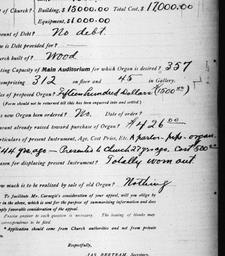 of Church? Building, $15000.00 Total Cost, $17000.00
Equipment, $1000.00
Amount of Debt? No debt.
is Debt provided for?
Church built of? Wood
Seating Capacity of Main Auditorium for which Organ is desired? 357
comprising 312 on floor and 45 in Gallery.
Price of proposed Organ? Fifteen hundred Dollars ($1500.00)
(Form should not be returned till this has been enquired into and settled)
new Organ been ordered? No. Date of order?
amount already raised toward purchase of Organ? $426.00
Particulars of present Instrument, Age, Cost Price, Etc. A parlor, pipe-organ,
44 yrs. ago — Presented to Church 27 yrs. ago, Cost 500.00
Reason for displacing present Instrument? Totally worn out
How much is to be realized by sale of old Organ? Nothing
To facilitate Mr. Carnegie's consideration of your appeal, will you oblige by
in the above, which is sent for the purpose of summarizing information and does
imply favorable consideration of the appeal.
Precise answer to each question is necessary. The issuing of blanks may
correspondence to be filed.
* Application should come from Church authorities and not from private
Respectfully,
JAS. BERTRAM, Secretary.